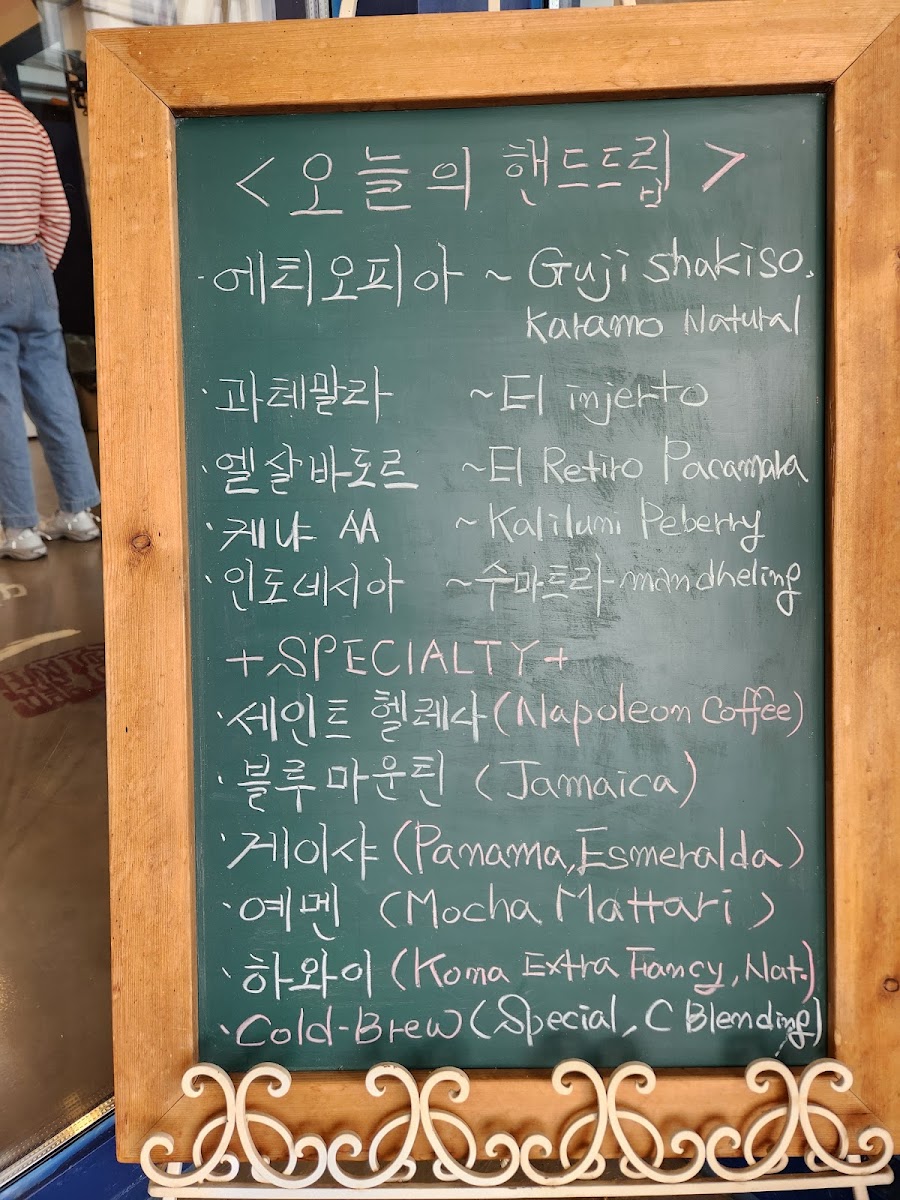 < 오늘의 핸드드립 >
· 에티오피아 ~ Guji Shakiso.
Karamo Natural
· 과테말라 ~ El injerto
· 엘살바도르 ~ El Retiro Pacamara
· 케냐 AA ~ Kalilumi Peberry
· 인도네시아 ~ 수마트라-mandheling
+ SPECIALTY +
· 세인트 헬레나 (Napoleon Coffee)
· 블루 마운틴 (Jamaica)
· 게이샤 (Panama, Esmeralda)
· 예멘 (Mocha Mattari)
· 하와이 (Kona Extra Fancy, Nat.)
· Cold-Brew (Special, C Blending)